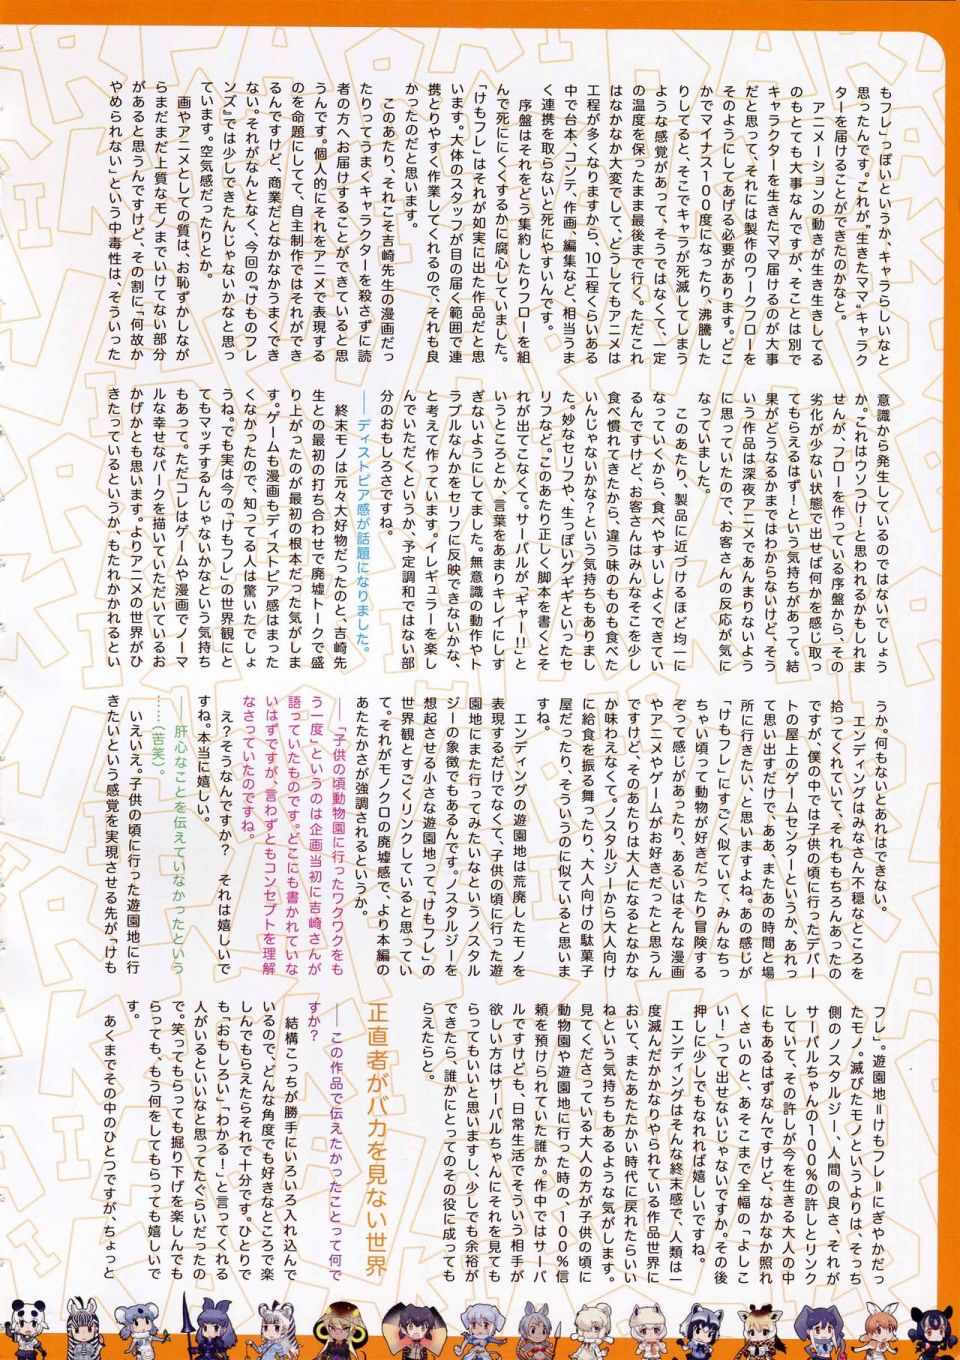 もフレ』っぽいというか、キャラらしいなと
思ったんです。これが“生きたママ”キャラク
ターを届けることができたのかなと。
　アニメーションの動きが生き生きしてる
のもとても大事なんですが、そことは別で
キャラクターを生きたママ届けるのが大事
だと思って、それには製作のワークフローを
そのようにしてあげる必要があります。どこ
かでマイナス100度になったり、沸騰した
りしてると、そこでキャラが死滅してしまう
ような感覚があって、そうではなくて、一定
の温度を保ったまま最後まで行く。ただこれ
はなかなか大変でして、どうしてもアニメは
工程が多くなりますから、10工程くらいある
中で台本、コンテ、作画、編集など、相当うま
く連携を取らないと死にやすいんです。
　序盤はそれをどう集約したりフローを組
んで死ににくくするかに腐心していました。
『けもフレ』はそれが如実に出た作品だと思
います。大体のスタッフが目の届く範囲で連
携とりやすく作業してくれるので、それも良
かったのだと思います。
　このあたり、それこそ吉崎先生の漫画だっ
たりってうまくキャラクターを殺さずに読
者の方へお届けすることができていると思
うんです。個人的にそれをアニメで表現する
のを命題にしてて、自主制作ではそれができ
るんですけど、商業だとなかなかうまくでき
ない。それがなんとなく、今回の『けものフレ
ンズ』では少しできたんじゃないかなと思っ
ています。空気感だったりとか。
　画やアニメとしての質は、お恥ずかしなが
らまだまだ上質なモノまでいけてない部分
があると思うんですけど、その割に「何故か
やめられない」という中毒性は、そういった
意識から発生しているのではないでしょう
か。これはウソつけ!と思われるかもしれま
せんが、フローを作っている序盤から、その
劣化が少ない状態で出せば何かを感じ取っ
てもらえるはず!という気持ちがあって。結
果がどうなるかまではわからないけど、そう
いう作品は深夜アニメであんまりないよう
に思っていたので、お客さんの反応が気に
なっていました。
　このあたり、製品に近づけるほど均一に
なっていくから、食べやすいしよくできてい
るんですけど、お客さんはみんなそこを少し
食べ慣れてきたから、違う味のものも食べた
いんじゃないかな?という気持ちもありまし
た。妙なセリフや、生っぽいグギギといったセ
リフなど。このあたり正しく脚本を書くとそ
れが出てこなくて。サーバルが「ギャー!!」と
いうところとか、言葉をあまりキレイにしす
ぎないようにしてました。無意識の動作やト
ラブルなんかをセリフに反映できないかな、
と考えて作っています。イレギュラーを楽し
んでいただくというか、予定調和ではない部
分のおもしろさですね。
――ディストピア感が話題になりました。
　終末モノは元々大好物だったのと、吉崎先
生との最初の打ち合わせで廃墟トークで盛
り上がったのが最初の根本だった気がしま
す。ゲームも漫画もディストピア感はまった
くなかったので、知ってる人は驚いたでしょ
うね。でも実は今の『けもフレ』の世界観にと
てもマッチするんじゃないかなという気持ち
もあって。ただコレはゲームや漫画でノーマ
ルな幸せなパークを描いていただいているお
かげかとも思います。よりアニメの世界がひ
きたっているというか、もたれかかれるとい
うか。何もないとあれはできない。
　エンディングはみなさん不穏なところを
拾ってくれていて、それももちろんあったの
ですが、僕の中では子供の頃に行ったデパー
トの屋上のゲームセンターというか、あれっ
て思い出すだけで、ああ、またあの時間と場
所に行きたい、と思いますよね。あの感じが
『けもフレ』にすごく似ていて、みんなちっ
ちゃい頃って動物が好きだったり冒険する
ぞって感じがあったり、あるいはそんな漫画
やアニメやゲームがお好きだったと思うん
ですけど、そのあたりは大人になるとなかな
か味わえなくて。ノスタルジーから大人向け
に給食を振る舞ったり、大人向けの駄菓子
屋だったり、そういうのに似ていると思いま
すね。
　エンディングの遊園地は荒廃したモノを
表現するだけでなくて、子供の頃に行った遊
園地にまた行ってみたいなというノスタル
ジーの象徴でもあるんです。ノスタルジーを
想起させる小さな遊園地って『けもフレ』の
世界観とすごくリンクしていると思ってい
て。それがモノクロの廃墟感で、より本編の
あたたかさが強調されるというか。
――「子供の頃動物園に行ったワクワクをも
う一度」というのは企画当初に吉崎さんが
語っていたものです。どこにも書かれていな
いはずですが、言わずともコンセプトを理解
なさっていたのですね。
　え?そうなんですか?　それは嬉しいで
すね。本当に嬉しい。
――肝心なことを伝えていなかったという
……(苦笑)。
　いえいえ。子供の頃に行った遊園地に行
きたいという感覚を実現させる先が『けも
フレ』。遊園地=けもフレ=にぎやかだっ
たモノ。滅びたモノというよりは、そっち
側のノスタルジー、人間の良さ、それが
サーバルちゃんの100%の許しとリンク
していて、その許しが今を生きる大人の中
にもあるはずなんですけど、なかなか照れ
くさいのと、あそこまで全幅の「よしこ
い!」って出せないじゃないですか。その後
押しに少しでもなれれば嬉しいですね。
　エンディングはそんな終末感で、人類は一
度滅んだかかなりやられている作品世界に
おいて、またあたたかい時代に戻れたらいい
ねという気持ちもあるような気がします。
見てくださっている大人の方が子供の頃に
動物園や遊園地に行った時の、100%信
頼を預けられていた誰か。作中ではサーバ
ルですけども、日常生活でそういう相手が
欲しい方はサーバルちゃんにそれを見ても
らってもいいと思いますし、少しでも余裕が
できたら、誰かにとってのその役に成っても
らえたらと。
正直者がバカを見ない世界
――この作品で伝えたかったことって何で
すか?
　結構こっちが勝手にいろいろ入れ込んで
いるので、どんな角度でも好きなところで楽
しんでもらえたらそれで十分です。ひとりで
も「おもしろい」「わかる!」と言ってくれる
人がいるといいなと思ってたぐらいだったの
で。笑ってもらっても掘り下げを楽しんでも
らっても、もう何をしてもらっても嬉しいで
す。
　あくまでその中のひとつですが、ちょっと